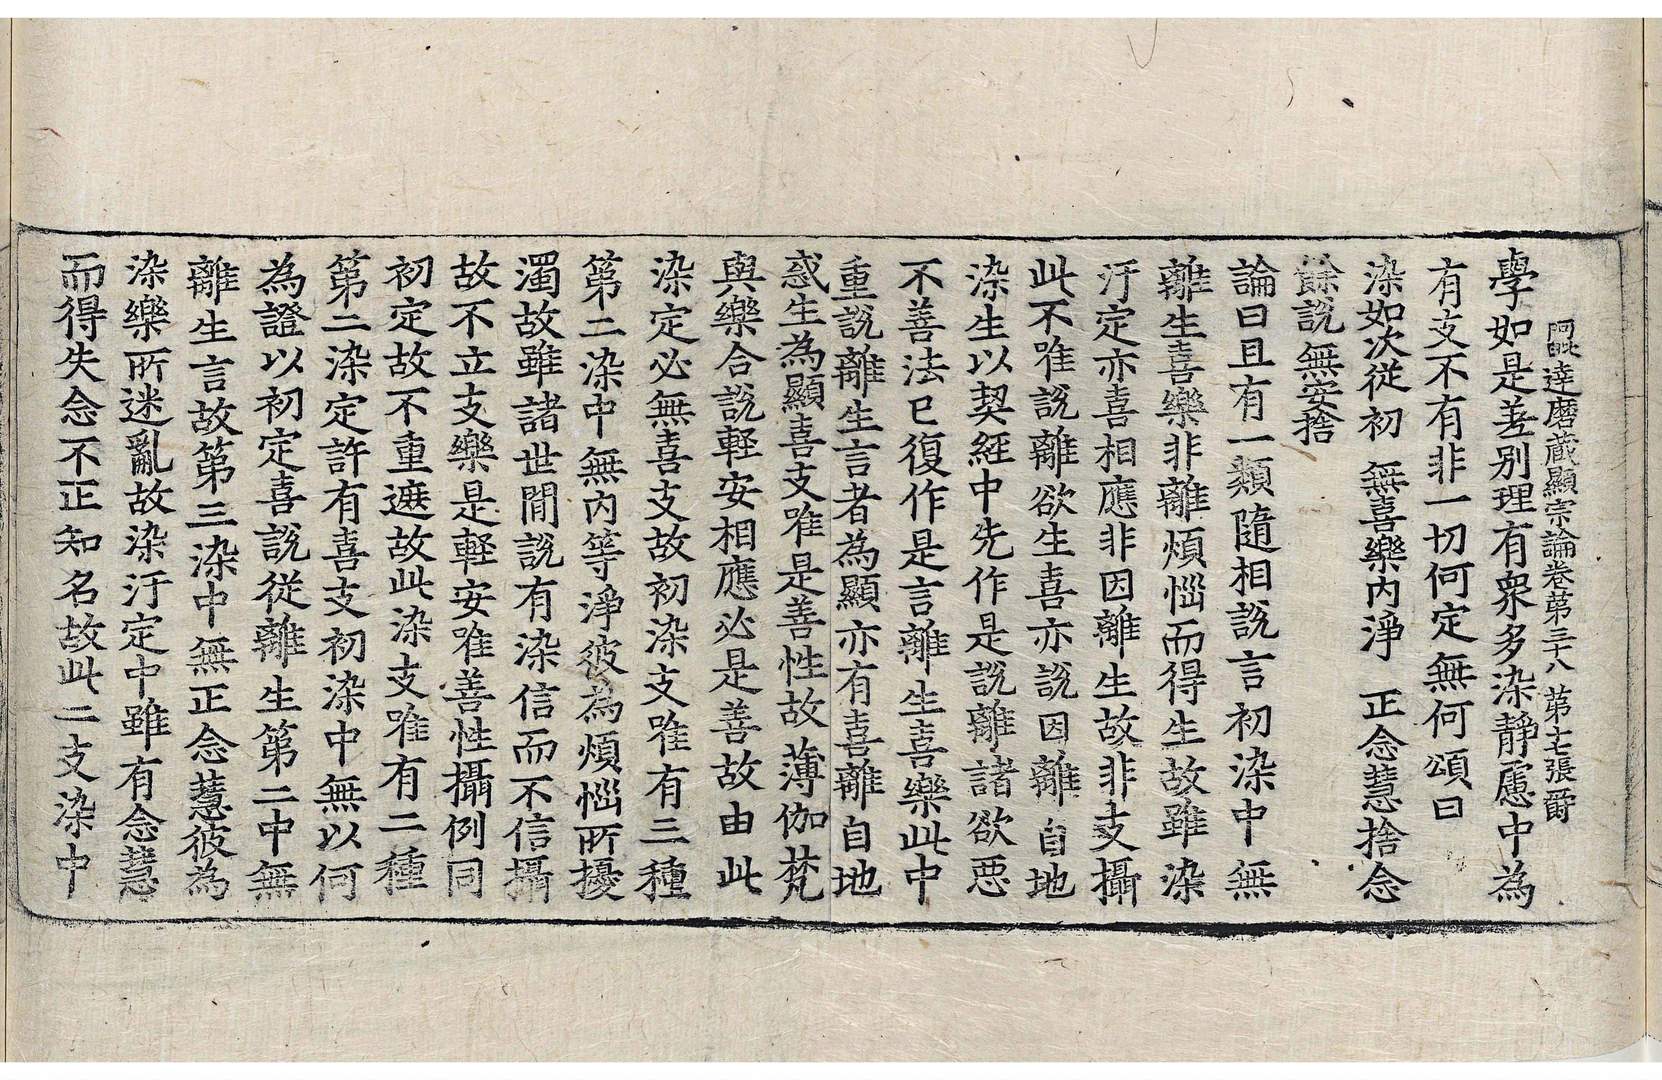 阿毗達磨藏顯宗論卷第三十八 第七張 爵
學如是差別理有衆多染靜慮中為
有支不有非一切何定無何頌曰
染如次從初 無喜樂內淨 正念慧捨念
餘說無安捨
論曰且有一類隨相說言初染中無
離生喜樂非離煩惱而得生故雖染
汙定亦喜相應非因離生故非支攝
此不唯說離欲生喜亦說因離自地
染生以契經中先作是說離諸欲惡
不善法已復作是言離生喜樂此中
重說離生言者為顯亦有喜離自地
惑生為顯喜支唯是善性故薄伽梵
與樂合說輕安相應必是善故由此
染定必無喜支故初染支唯有三種
第二染中無內等淨彼為煩惱所擾
濁故雖諸世間說有染信而不信攝
故不立支樂是輕安唯善性攝例同
初定故不重遮故此染支唯有二種
第二染定許有喜支初染中無以何
為證以初定喜說從離生第二中無
離生言故第三染中無正念慧彼為
染樂所迷亂故染汙定中雖有念慧
而得失念不正知名故此二支染中